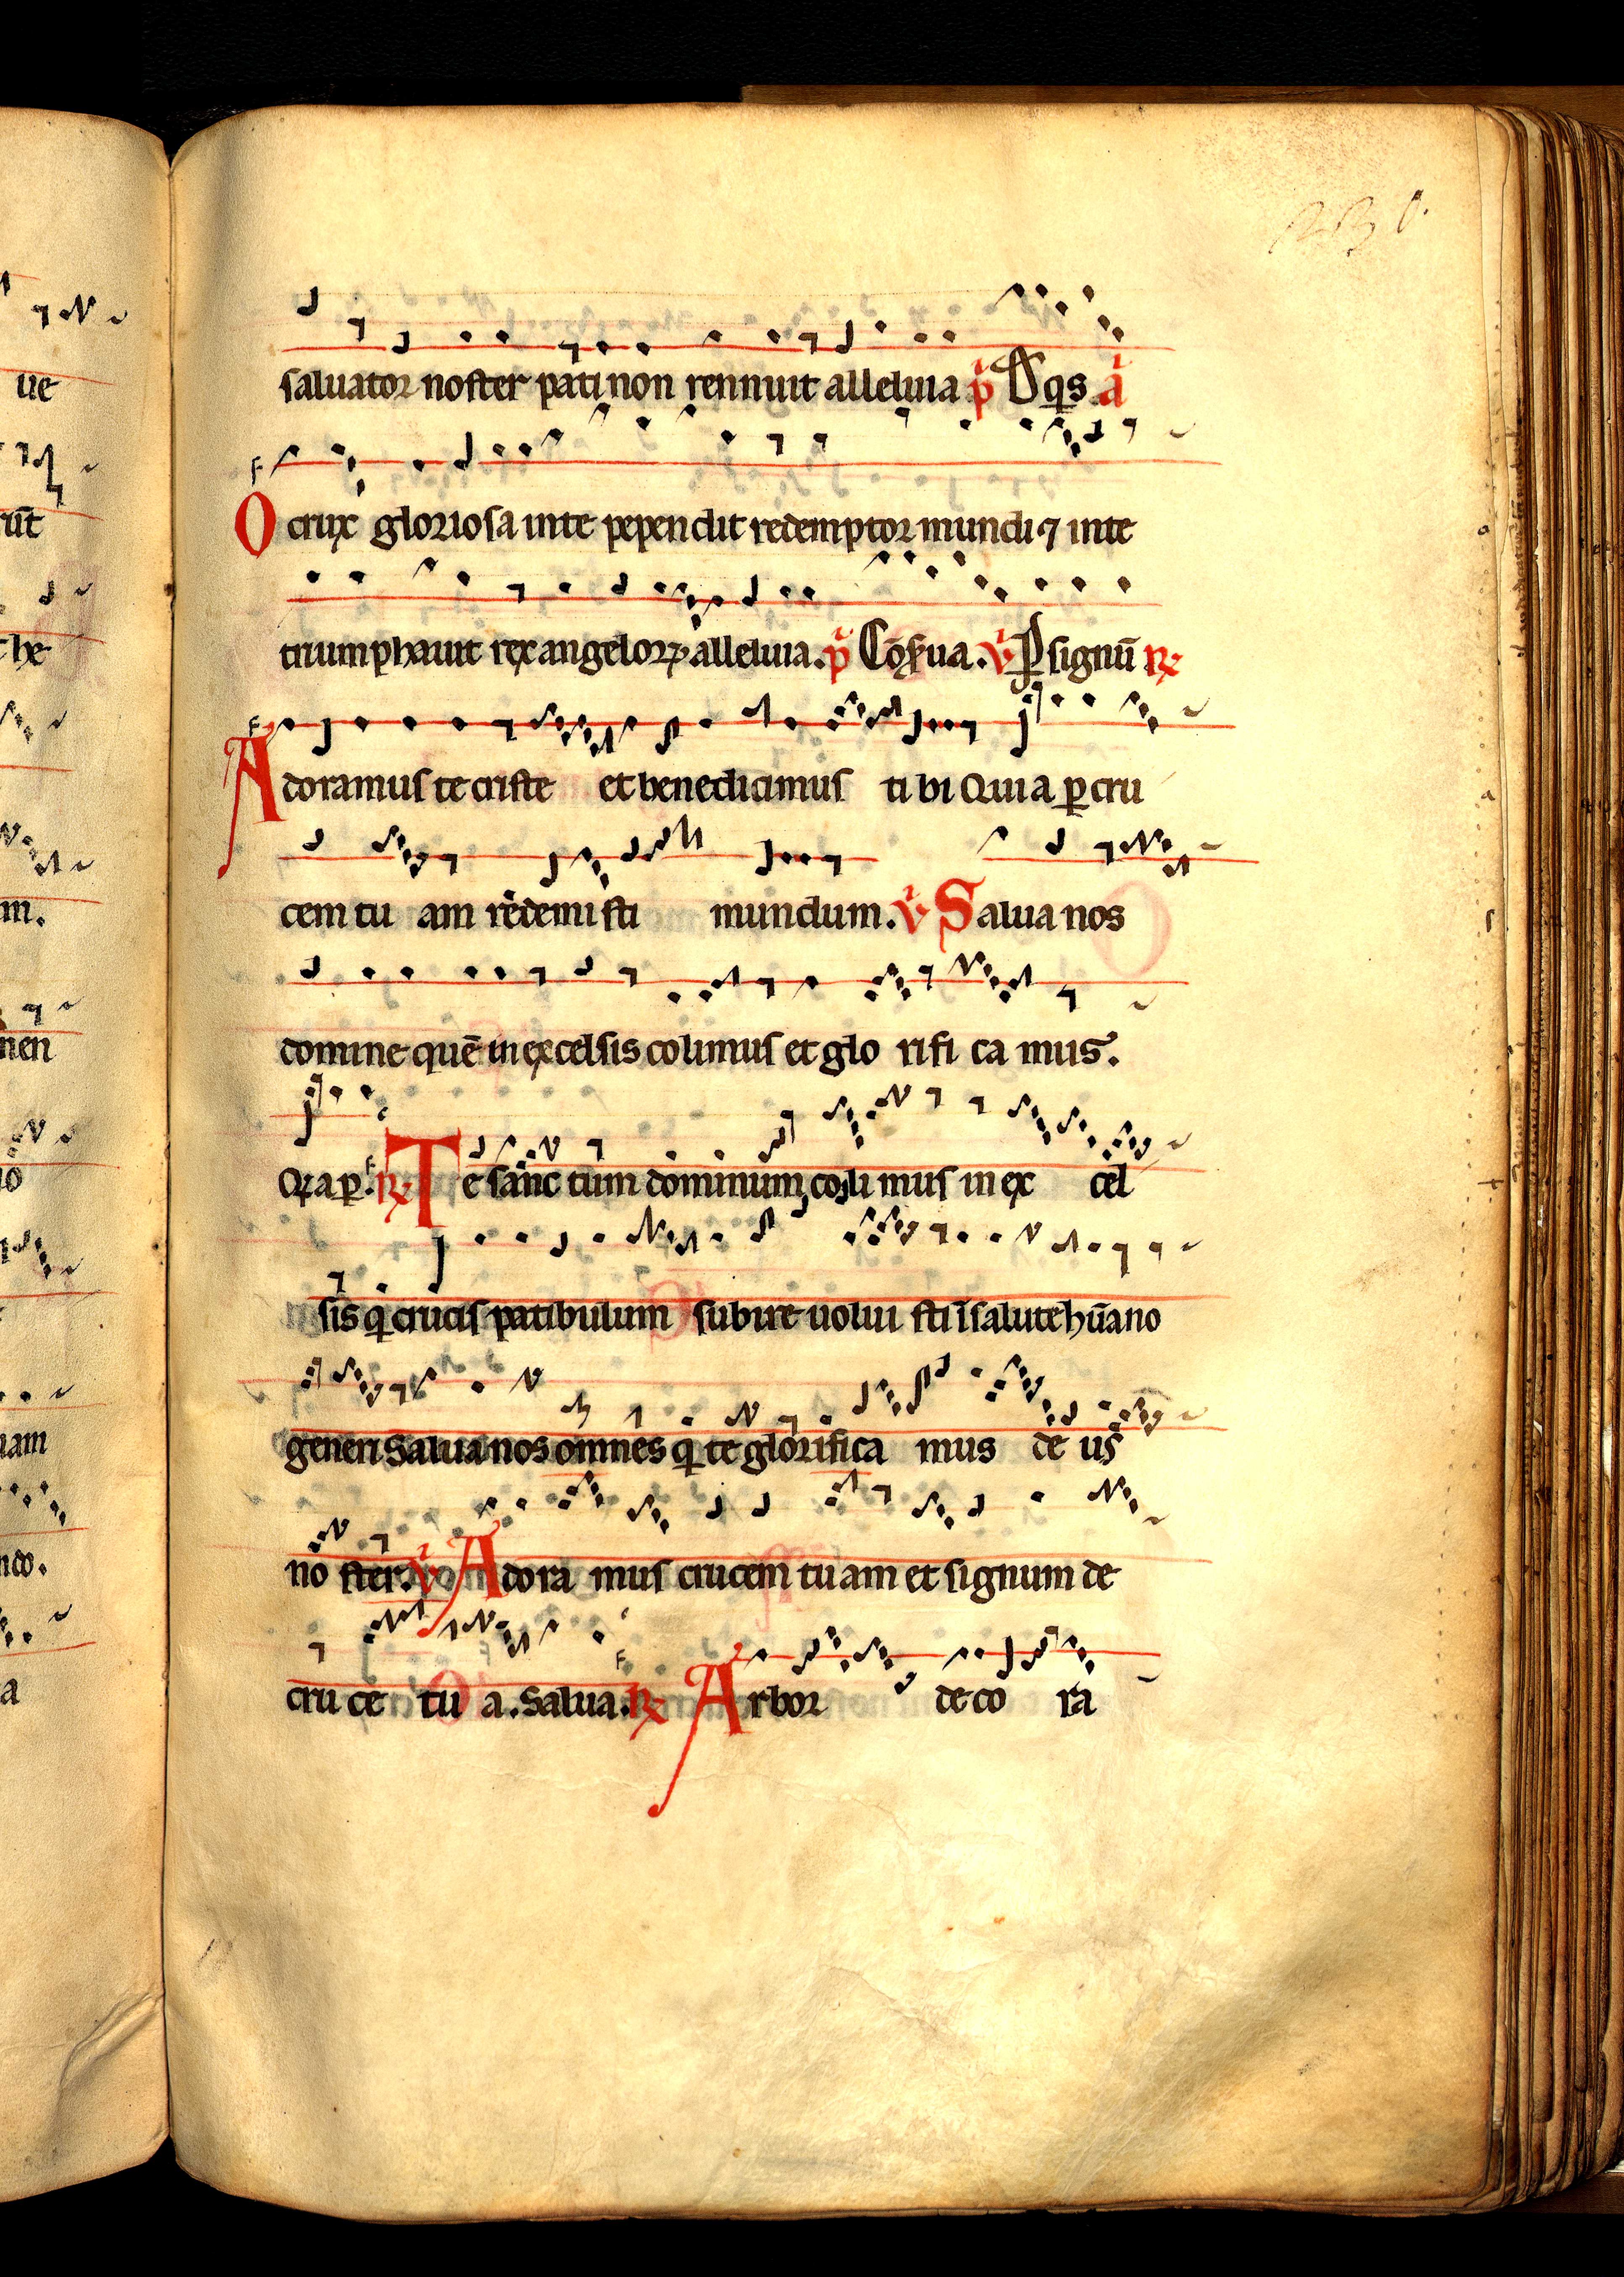 230.
saluator noster pati non rennuit alleluia p̄ Dqs. a
O crux gloriosa inte pependit redemptor mundi ⁊ inte
triumphauit rex angeloꝝ alleluia. p̄ Co uua. ℣ ꝑ signū ℞
Adoramus te criste et benedicimus ti bi Quia ꝑ cru
cem tu am redemi sti mundum. ℣ Salua nos
domine quē in excelsis colimus et glo rifi ca mus.
Qia ꝑ. ℞ Te sanc tum dominum coli mus in ex cel
sis q crucis patibulum subire uolui sti ī salute hūano
generi Salua nos omnes q te glorifica mus de us
no ster. ℣ Adora mus crucem tuam et signum de
cru ce tu a. Salua. ℞ Arbor deco ra